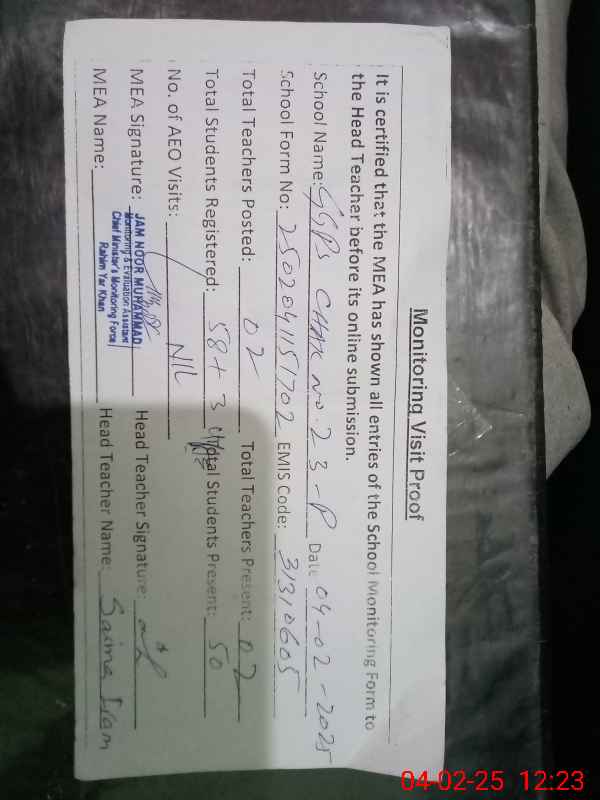 Monitoring Visit Proof
It is certified that the MEA has shown all entries of the School Monitoring Form to
the Head Teacher before its online submission.
School Name: GGPS CHAK NO. 23-P Date 04-02-2025
School Form No: 2502041151702 EMIS Code: 31310605
Total Teachers Posted: 02 Total Teachers Present: 02
Total Students Registered: 58+3 Total Students Present: 50
No. of AEO Visits: NIL
MEA Signature: Head Teacher Signature:
JAM NOOR MUHAMMAD
Monitoring & Evaluation Assistant
Chief Minister's Monitoring Force
Rahim Yar Khan
MEA Name: Head Teacher Name: Saima Iram
04-02-25 12:23